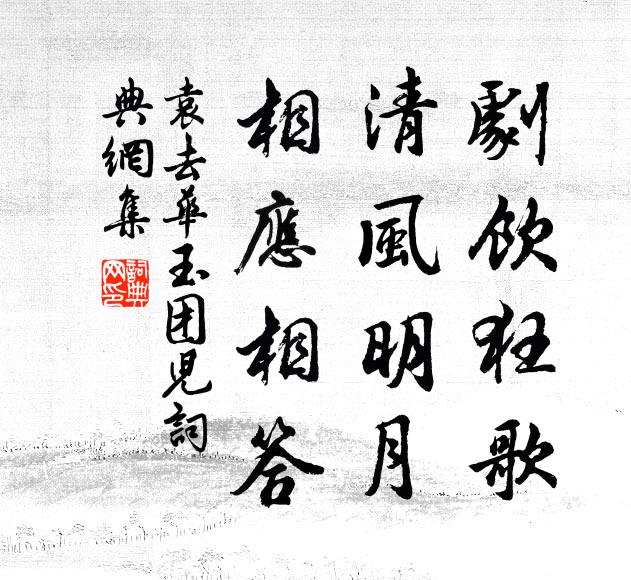 劇飲狂歌
清風明月
相應相答
袁去華玉団児詞
典網集
詞典網印